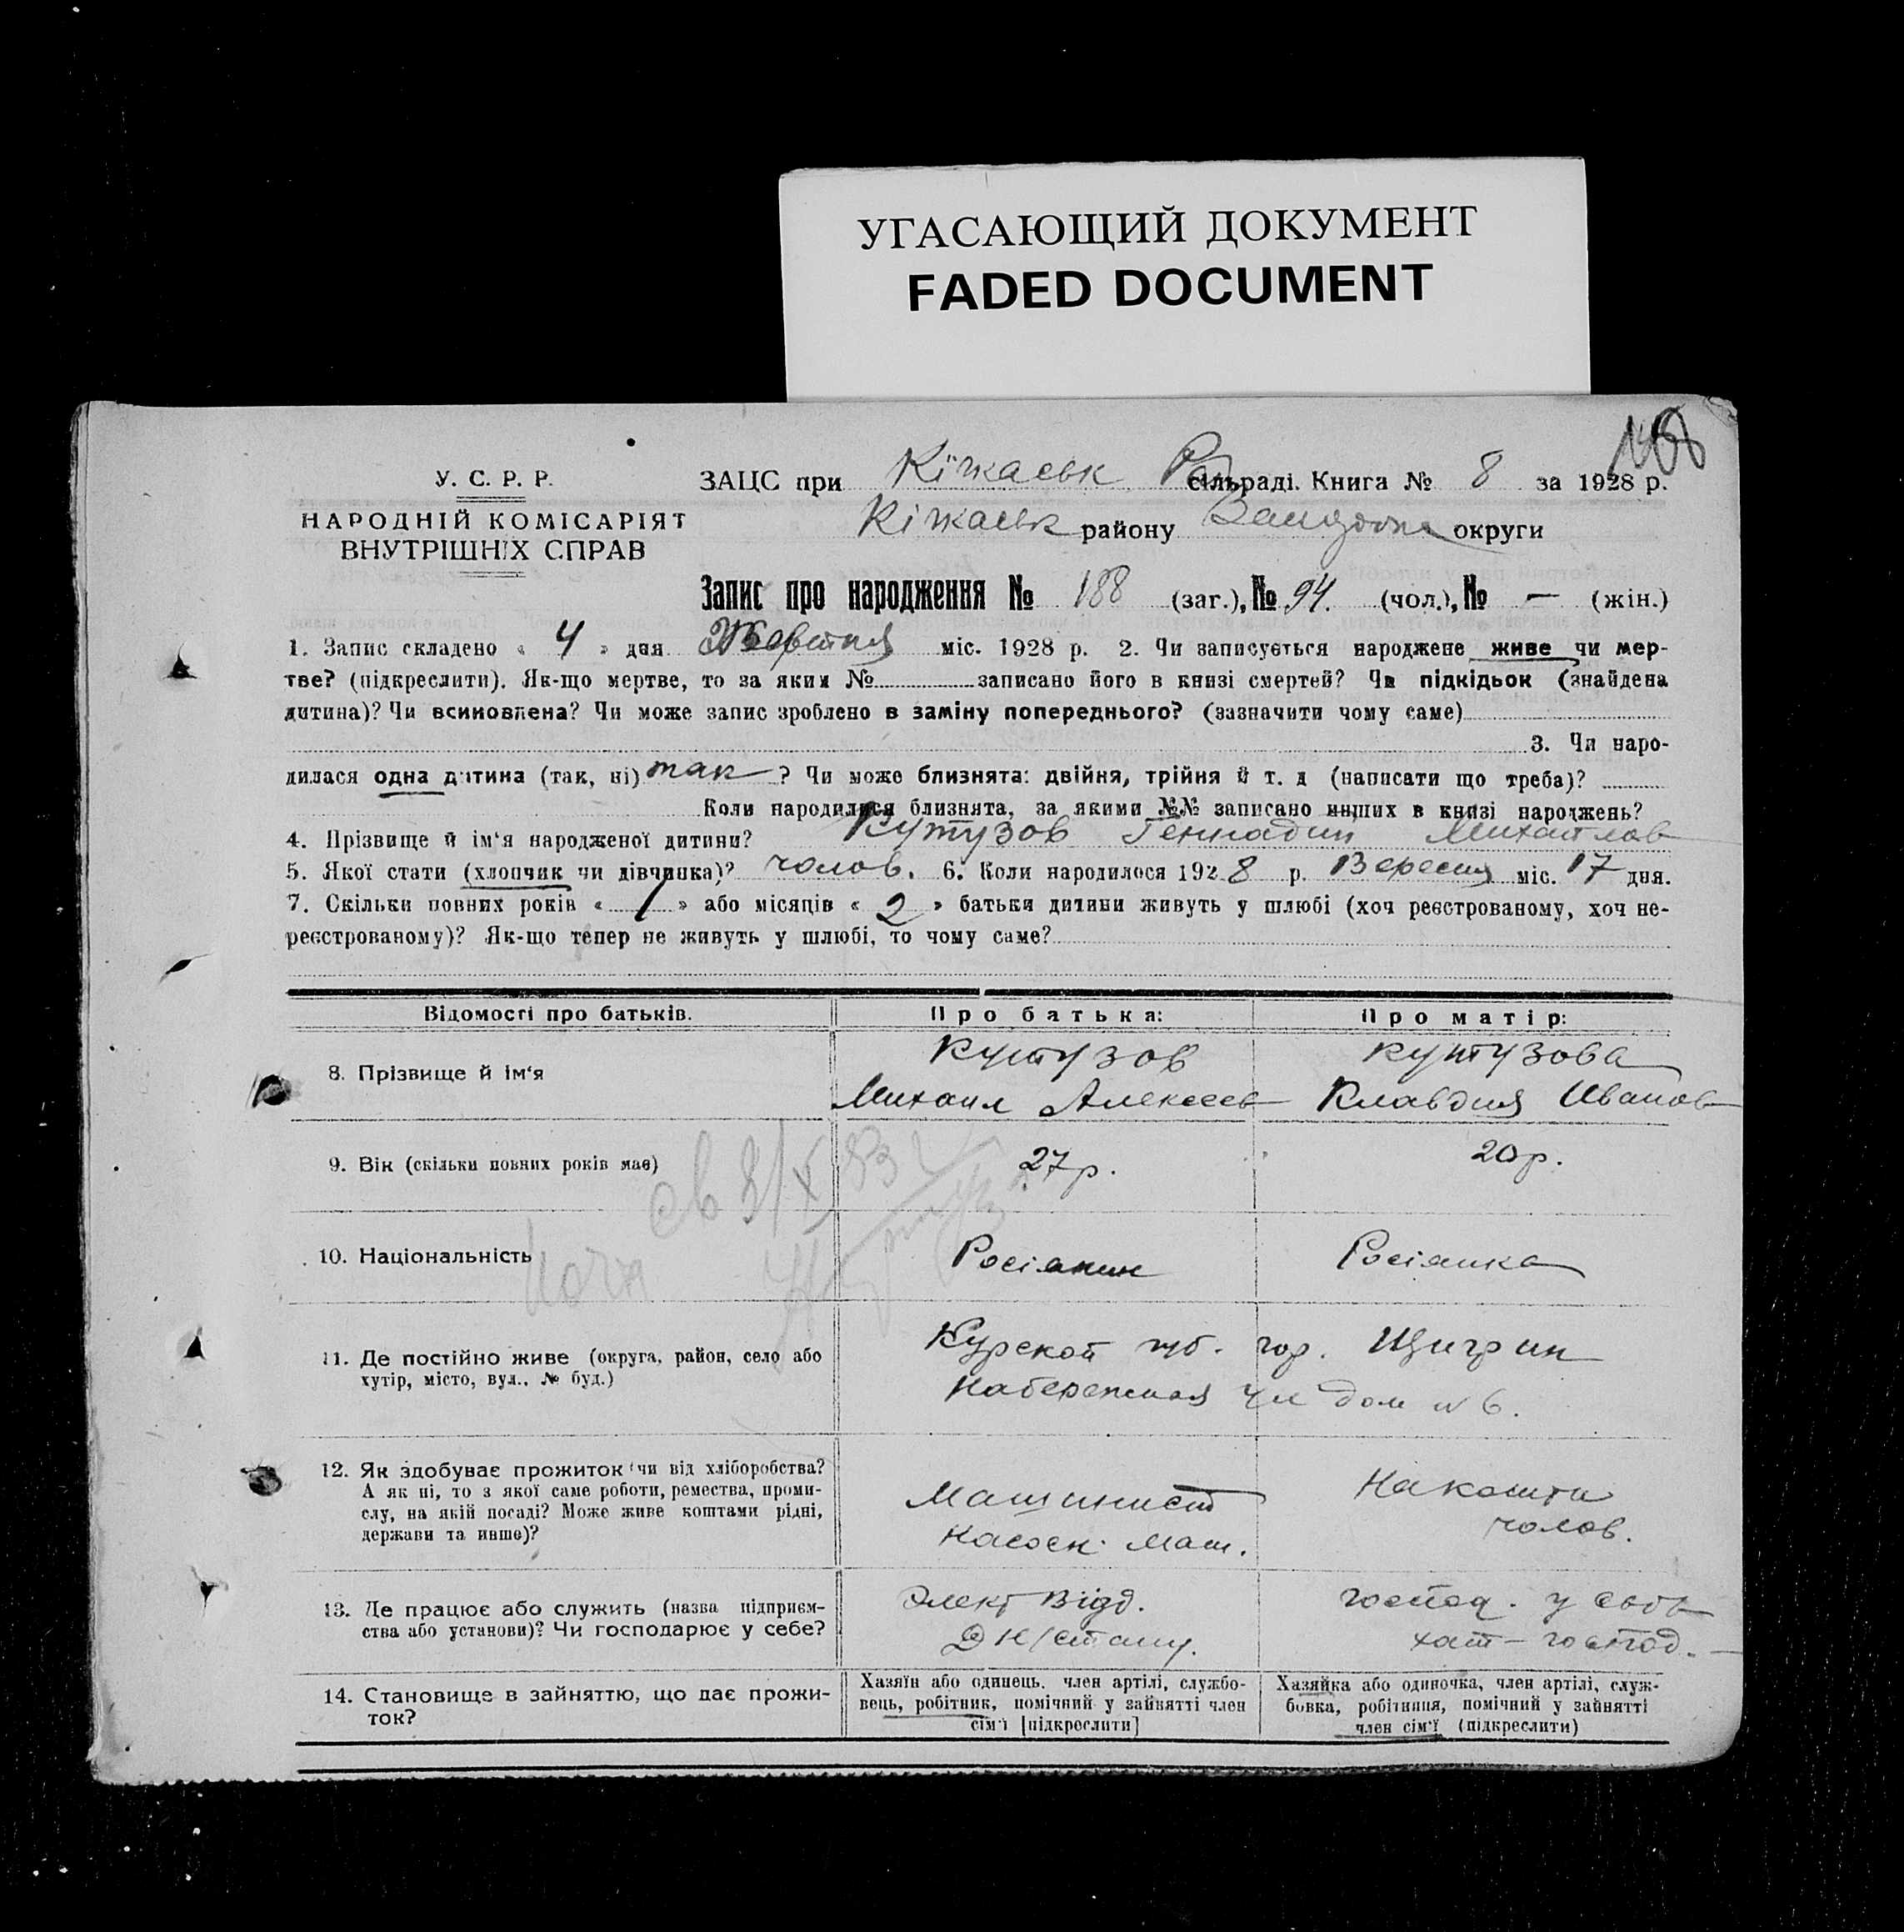 УГАСАЮЩИЙ ДОКУМЕНТ
FADED DOCUMENT
188
У. С. Р. Р.
НАРОДНІЙ КОМІСАРІЯТ
ВНУТРІШНІХ СПРАВ
ЗАЦС при Кічкаськ Рад сільраді. Книга № 8 за 1928 р.
Кічкаськ району округи
Запис про народження № 188 (заг.), № 94. (чол.), № — (жін.)
1. Запис складено « 4 » дня Жовтня міс. 1928 р. 2. Чи записується народжене живе чи мер-
тве? (підкреслити). Як-що мертве, то за яким № записано його в книзі смертей? Чи підкідьок (знайдена
дитина)? Чи всиновлена? Чи може запис зроблено в заміну попереднього? (зазначити чому саме)
3. Чи наро-
дилася одна дитина (так, ні) так ? Чи може близнята: двійня, трійня й т. д (написати що треба)?
Коли народилися близнята, за якими №№ записано инших в книзі народжень?
4. Прізвище й ім'я народженої дитини? Кутузов Геннадий Михайлов
5. Якої стати (хлопчик чи дівчинка)? чолов. 6. Коли народилося 1928 р. Вересня міс. 17 дня.
7. Скільки повних років « 1 » або місяців « 2 » батьки дитини живуть у шлюбі (хоч реєстрованому, хоч не-
реєстрованому)? Як-що тепер не живуть у шлюбі, то чому саме?
Відомості про батьків.
Про батька:
Про матір:
8. Прізвище й ім'я
Кутузов
Михаил Алексеев
Кутузова
Клавдия Иванов
9. Вік (скільки повних років має)
27 р.
20 р.
10. Національність
Росіянин
Росіянка
11. Де постійно живе (округа, район, село або
хутір, місто, вул., № буд.)
Курской губ. гор. Щигрии
Набережная ул дом № 6.
12. Як здобуває прожиток чи від хліборобства?
А як ні, то з якої саме роботи, ремества, проми-
слу, на якій посаді? Може живе коштами рідні,
держави та инше)?
Машинист
насосн. маш.
На кошти
чолов.
13. Де працює або служить (назва підприєм-
ства або установи)? Чи господарює у себе?
Элект Відд.
господ. у своя
хат – господ.
14. Становище в зайняттю, що дає прожи-
ток?
Хазяїн або одинець, член артілі, службо-
вець, робітник, помічний у зайнятті член
сім'ї [підкреслити]
Хазяйка або одиночка, член артілі, служ-
бовка, робітниця, помічний у зайнятті
член сім'ї (підкреслити)